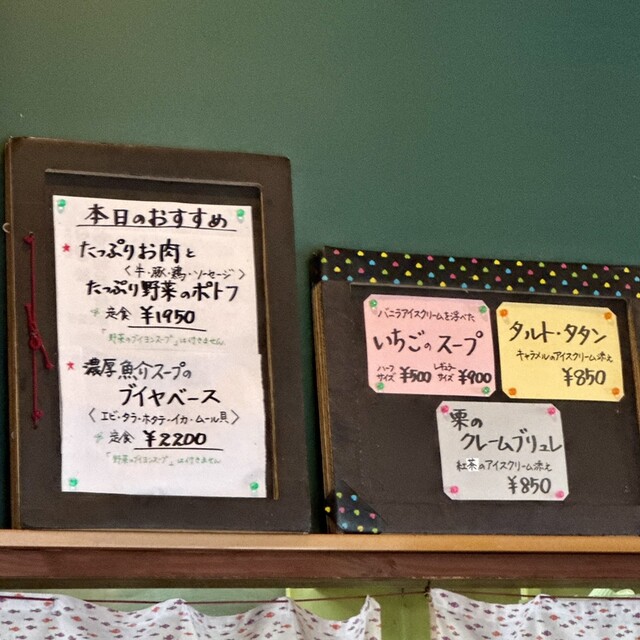 本日のおすすめ
★ たっぷりお肉と
〈牛・豚・鶏・ソーセージ〉
たっぷり野菜のポトフ
定食 ¥1950
「野菜のブイヨンスープ」は付きません
★ 濃厚魚介スープの
ブイヤベース
〈エビ・タラ・ホタテ・イカ・ムール貝〉
定食 ¥2200
「野菜のブイヨンスープ」は付きません
バニラアイスクリームを浮べた
いちごのスープ
ハーフサイズ ¥500 レギュラーサイズ ¥900
タルト・タタン
キャラメルのアイスクリーム添え
¥850
栗の
クレームブリュレ
紅茶のアイスクリーム添え
¥850